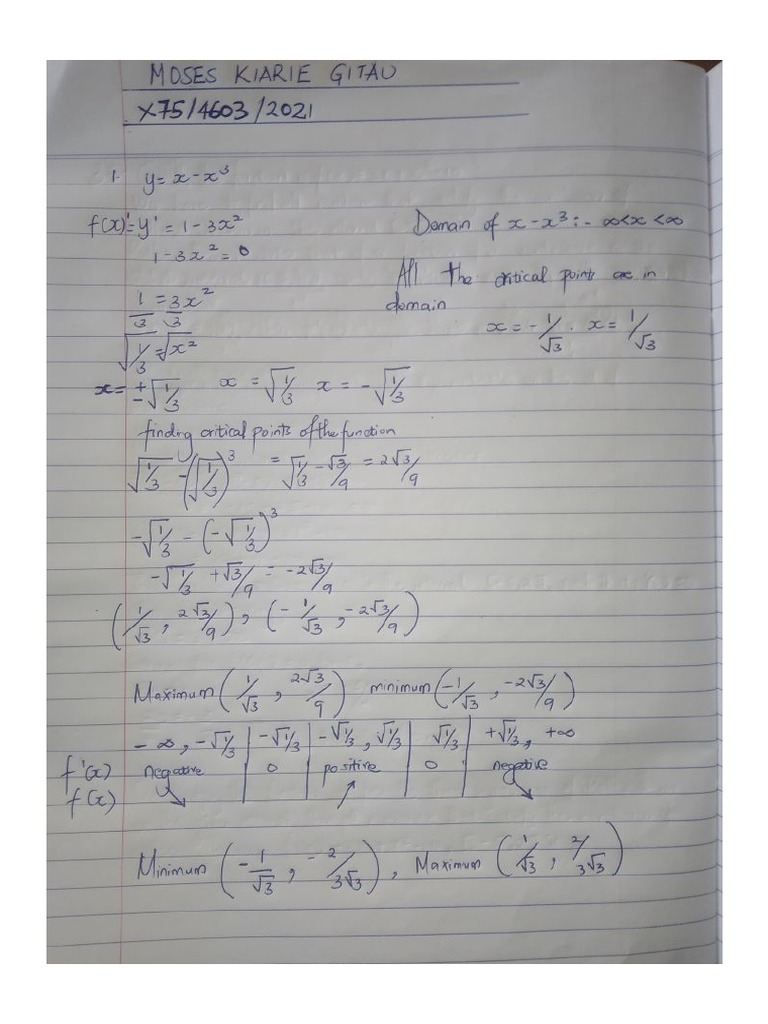 MOSES KIARIE GITAU
X75/4603/2021
1. y = x - x³
f(x)' = y' = 1 - 3x²
Domain of x - x³ : - ∞<x<∞
1 - 3x² = 0
All the critical points are in
domain
1/3 = 3x²/3
x = -1/√3 . x = 1/√3
√1/3 = √x²
x = ±√1/3 x = √1/3 x = -√1/3
finding critical points of the function
√1/3 - (√1/3)³ = √1/3 - √3/9 = 2√3/9
-√1/3 - (-√1/3)³
-√1/3 + √3/9 = -2√3/9
(1/√3, 2√3/9), (-1/√3, -2√3/9)
Maximum (1/√3, 2√3/9) minimum (-1/√3, -2√3/9)
-∞, -√1/3 | -√1/3 | -√1/3, √1/3 | √1/3 | +√1/3, +∞
f'(x) negative | 0 | positive | 0 | negative
f(x) ↘ ↗ ↘
Minimum (-1/√3, -2/3√3), Maximum (1/√3, 2/3√3)